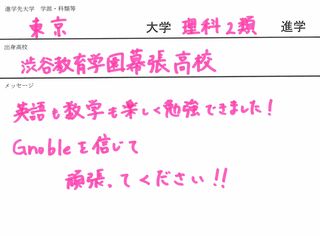 進学先大学　学部・科類等
東京 大学 理科2類 進学
出身高校
渋谷教育学園幕張高校
メッセージ
英語も数学も楽しく勉強できました!
Gnobleを信じて
頑張ってください!!